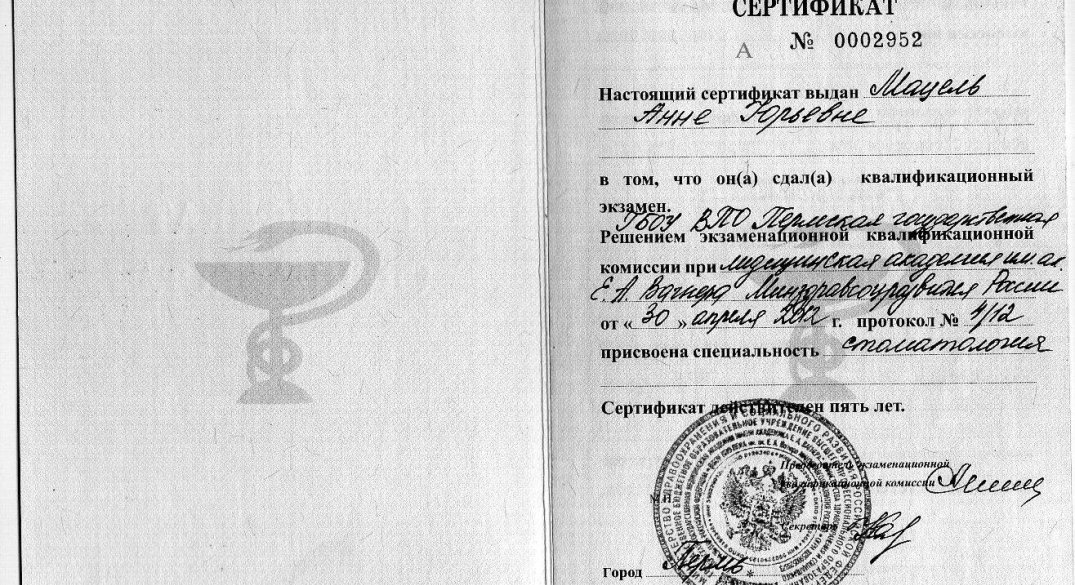 СЕРТИФИКАТ
А № 0002952
Настоящий сертификат выдан Мацель
Анне Юрьевне
в том, что он(а) сдал(а) квалификационный
экзамен.
ГБОУ ВПО Пермская государственная
Решением экзаменационной квалификационной
комиссии при медицинская академия им ак.
Е. А. Вагнера Минздравсоцразвития России
от « 30 » апреля 2012 г. протокол № 4/12
присвоена специальность стоматология
Сертификат действителен пять лет.
Председатель экзаменационной
квалификационной комиссии
Секретарь
Город Пермь